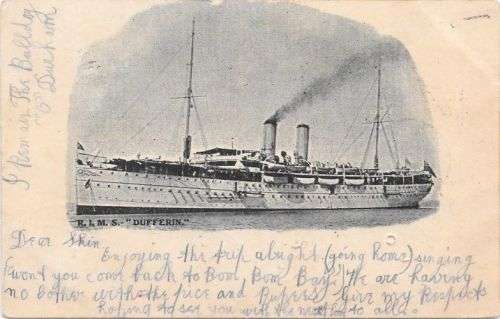 R. I. M. S. - "DUFFERIN."
Dear Skin
Enjoying the trip alright (going home) singing
wont you come back to Bom Bom Bay. We are having
no bother with the rice and Rupees. Give my Respects
hoping to see you well the next to all.
I the Bulldog